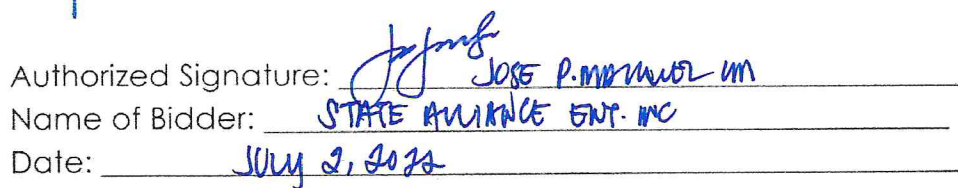 Authorized Signature: JOSE P.
Name of Bidder: STATE ALLIANCE ENT. INC
Date: JULY 2, 2022